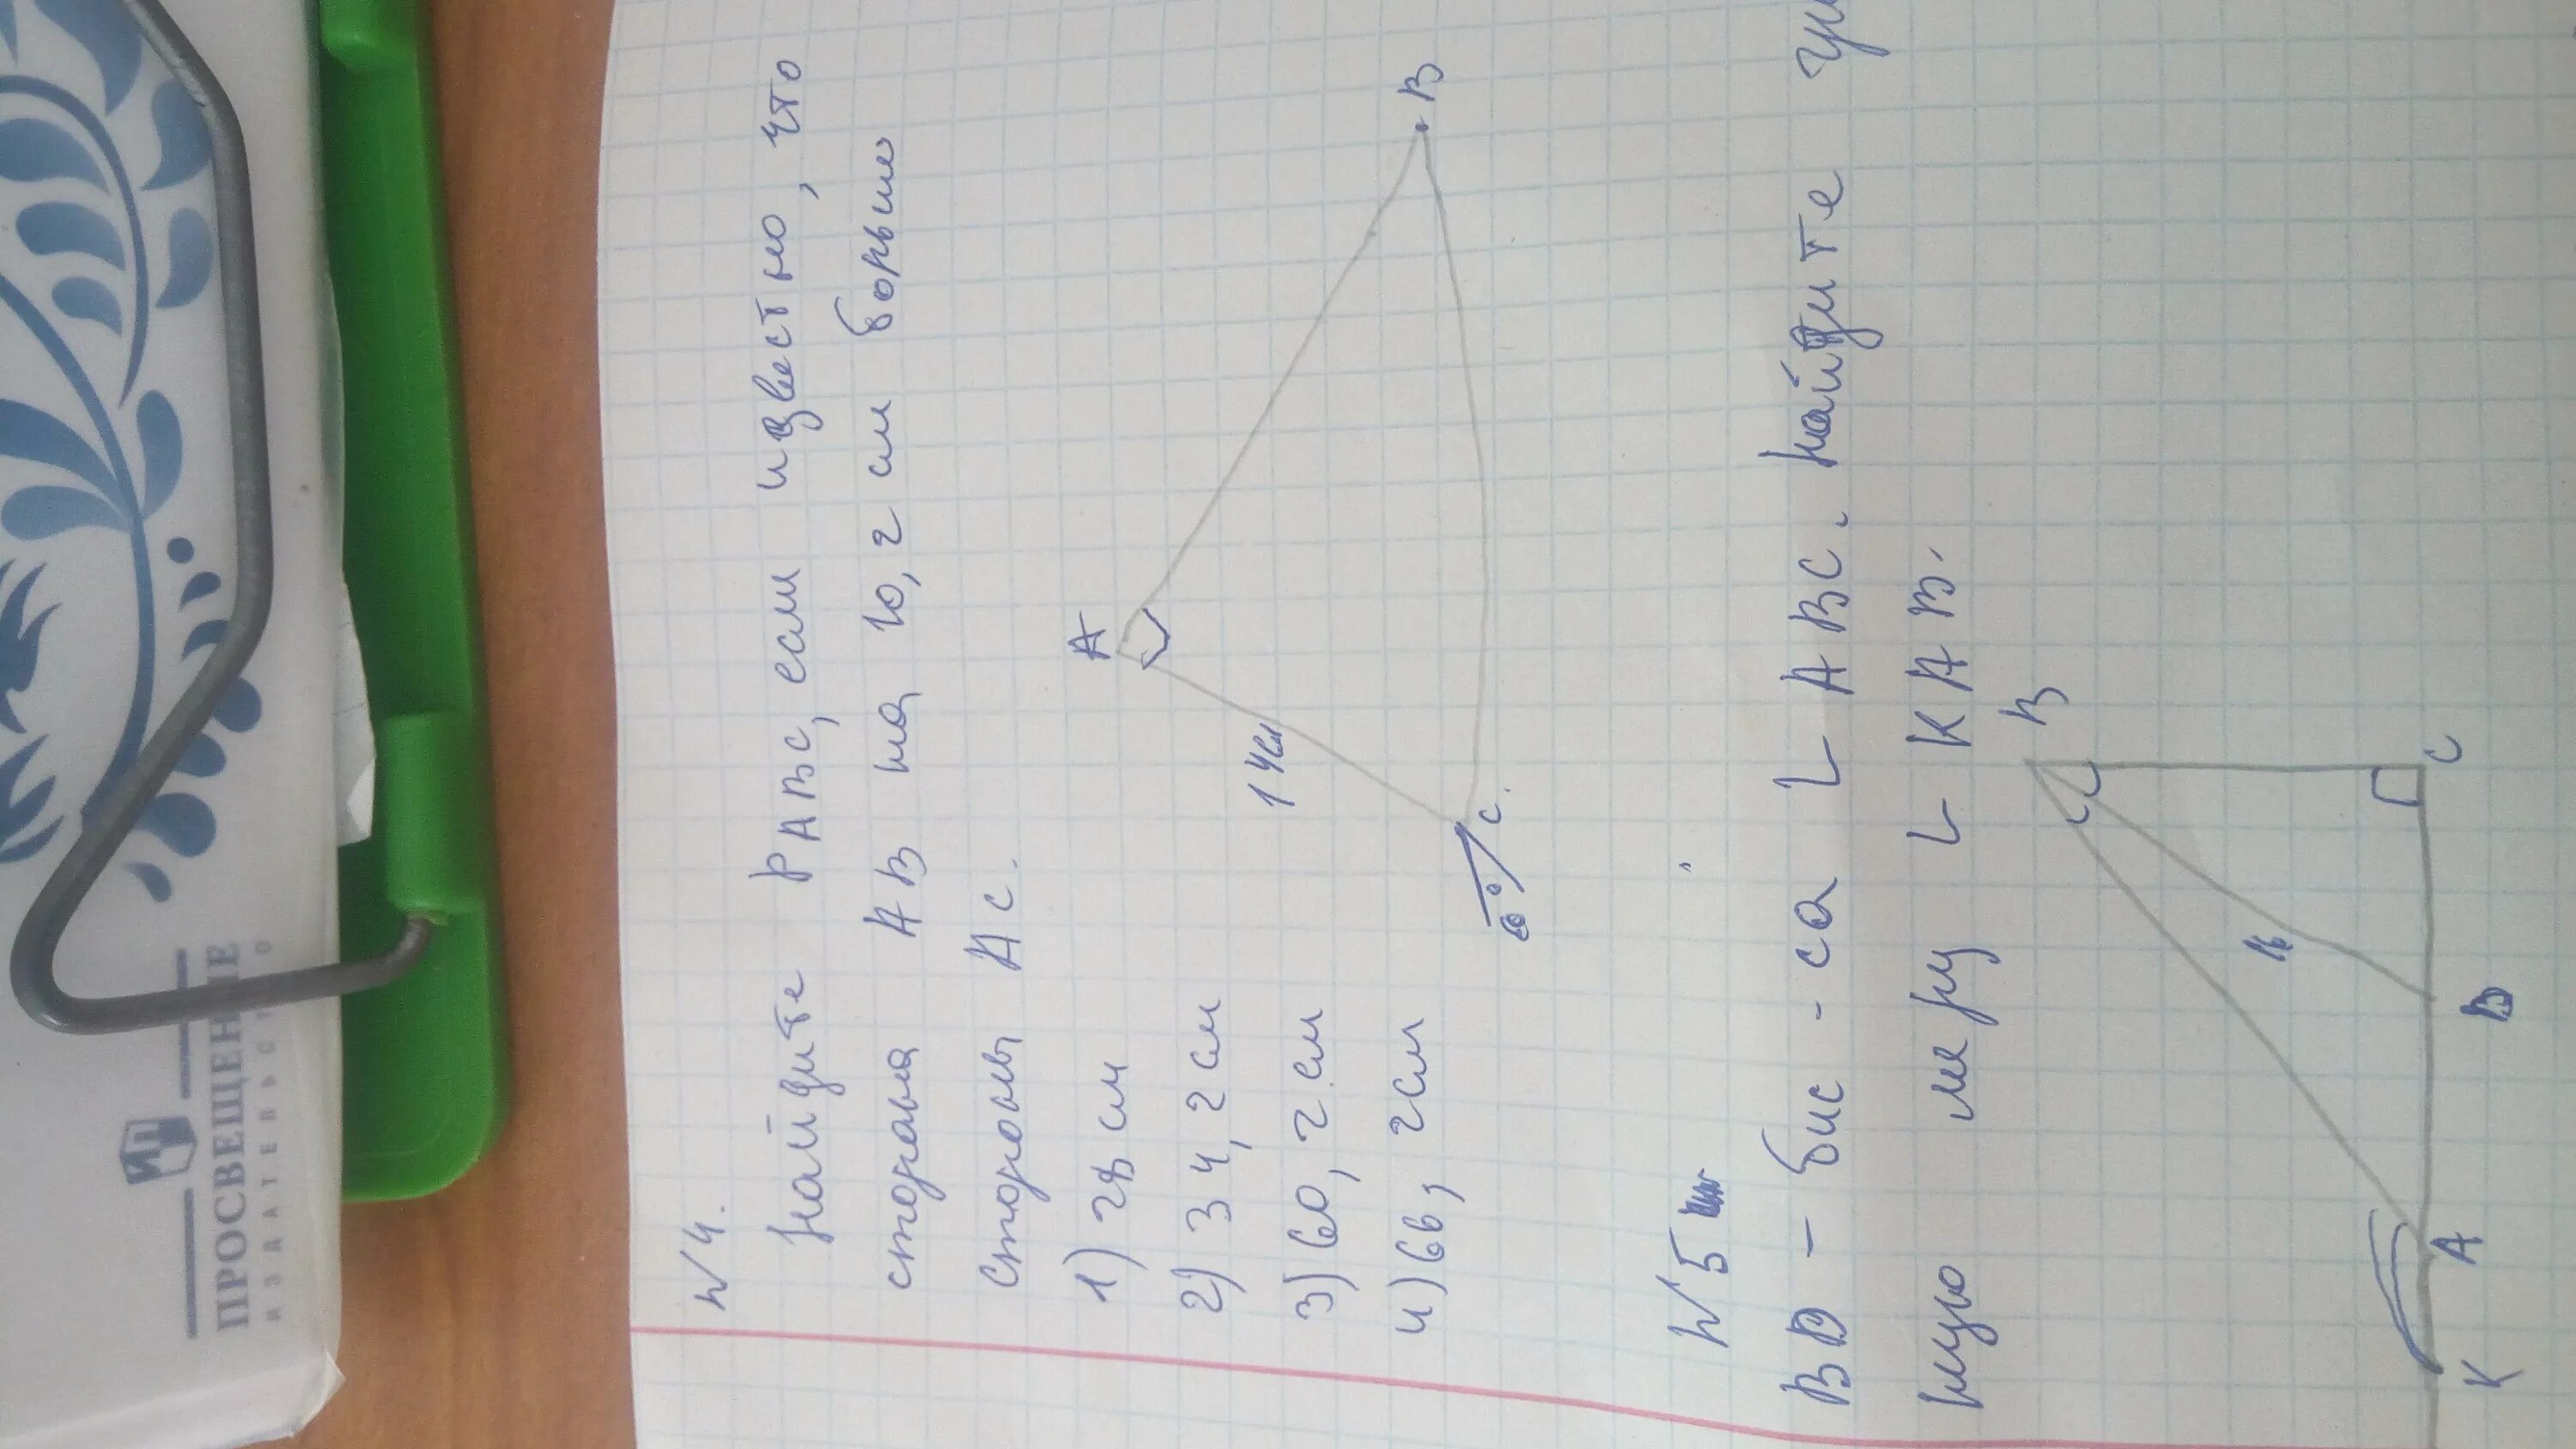 ПРОСВЕЩЕНИЕ
ИЗДАТЕЛЬСТВО
№4.
Найдите PABC, если известно, что
сторона AB на 10,2 см больше
стороны AC.
1) 28 см
2) 34,2 см
3) 60,2 см
4) 66,2 см
A
14см
B
C.
60°
№5
BD - бис-са ∟ABC. Найдите
меру ∟KAB.
B
C
D
A
K